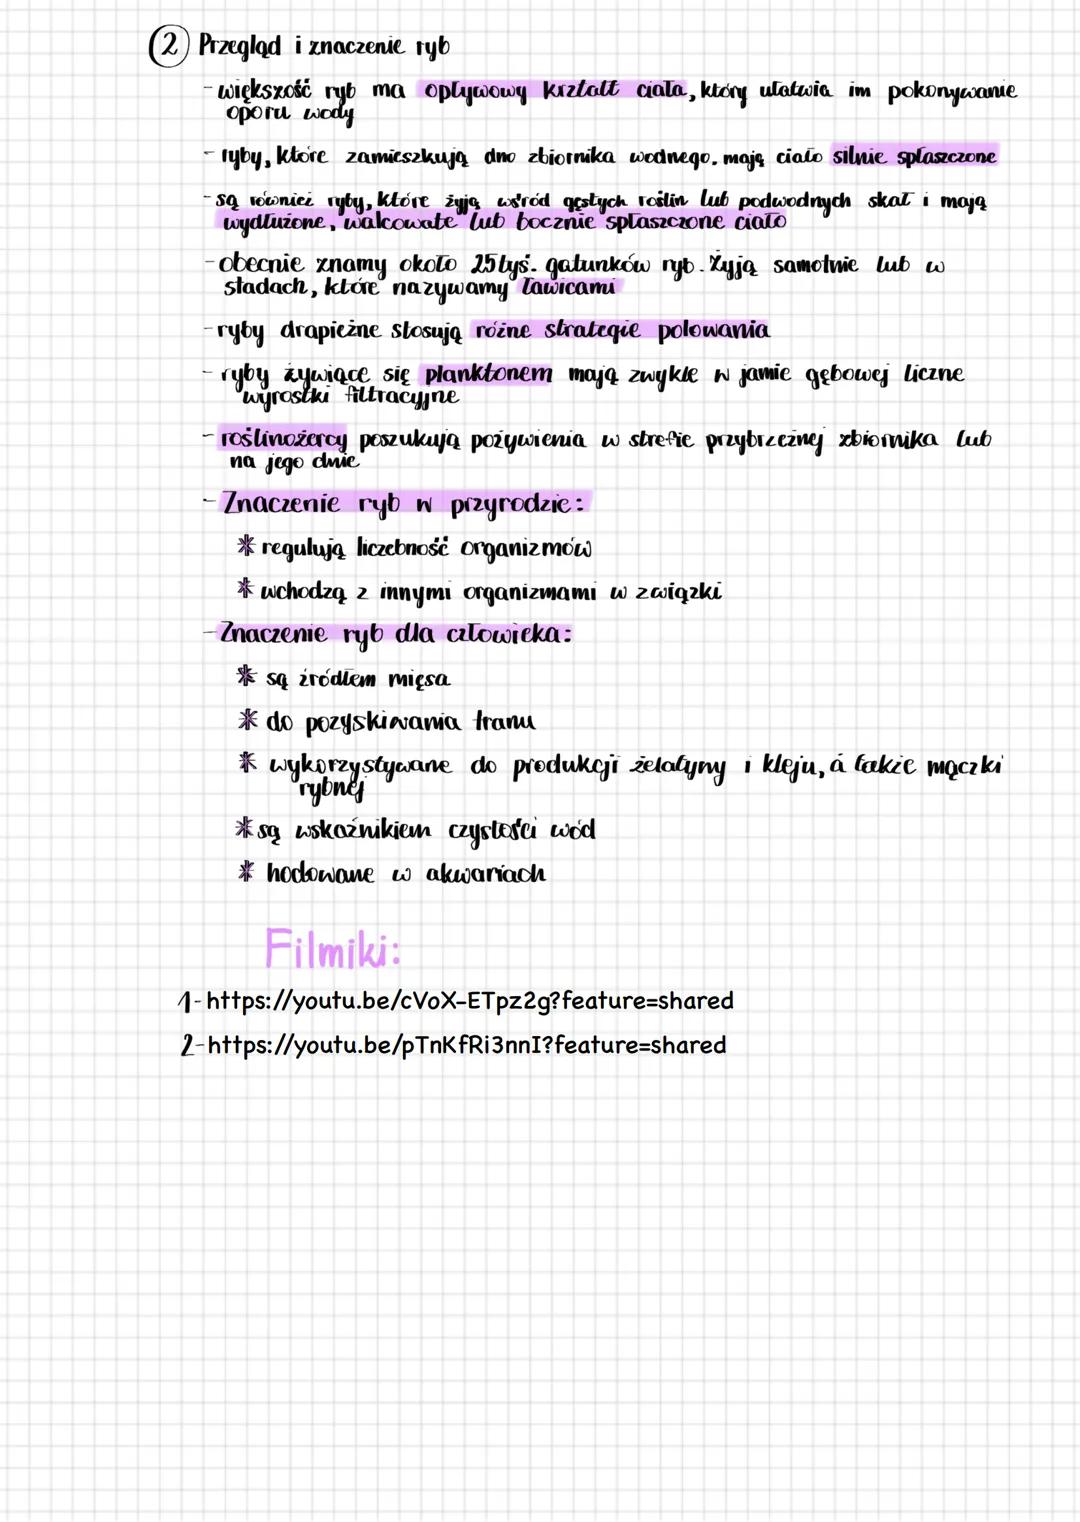 2 Przegląd i znaczenie ryb
- większość ryb ma opływowy kształt ciała, który ułatwia im pokonywanie
oporu wody
- ryby, które zamieszkują dno zbiornika wodnego, mają ciało silnie spłaszczone
- są również ryby, które żyją wśród gęstych roślin lub podwodnych skał i mają
wydłużone, walcowate lub bocznie spłaszczone ciało
- obecnie znamy około 25 tyś. gatunków ryb. Żyją samotnie lub w
stadach, które nazywamy ławicami
- ryby drapieżne stosują różne strategie polowania
- ryby żywiące się planktonem mają zwykle w jamie gębowej liczne
wyrostki filtracyjne
- roślinożercy poszukują pożywienia w strefie przybrzeżnej zbiornika lub
na jego dnie
- Znaczenie ryb w przyrodzie:
* regulują liczebność organizmów
* wchodzą z innymi organizmami w związki
- Znaczenie ryb dla człowieka:
* są źródłem mięsa
* do pozyskiwania tranu
* wykorzystywane do produkcji żelatyny i kleju, a także mączki
rybnej
* są wskaźnikiem czystości wód
* hodowane w akwariach
Filmiki:
1- https://youtu.be/cVoX-ETpz2g?feature=shared
2- https://youtu.be/pTnKfRi3nnI?feature=shared